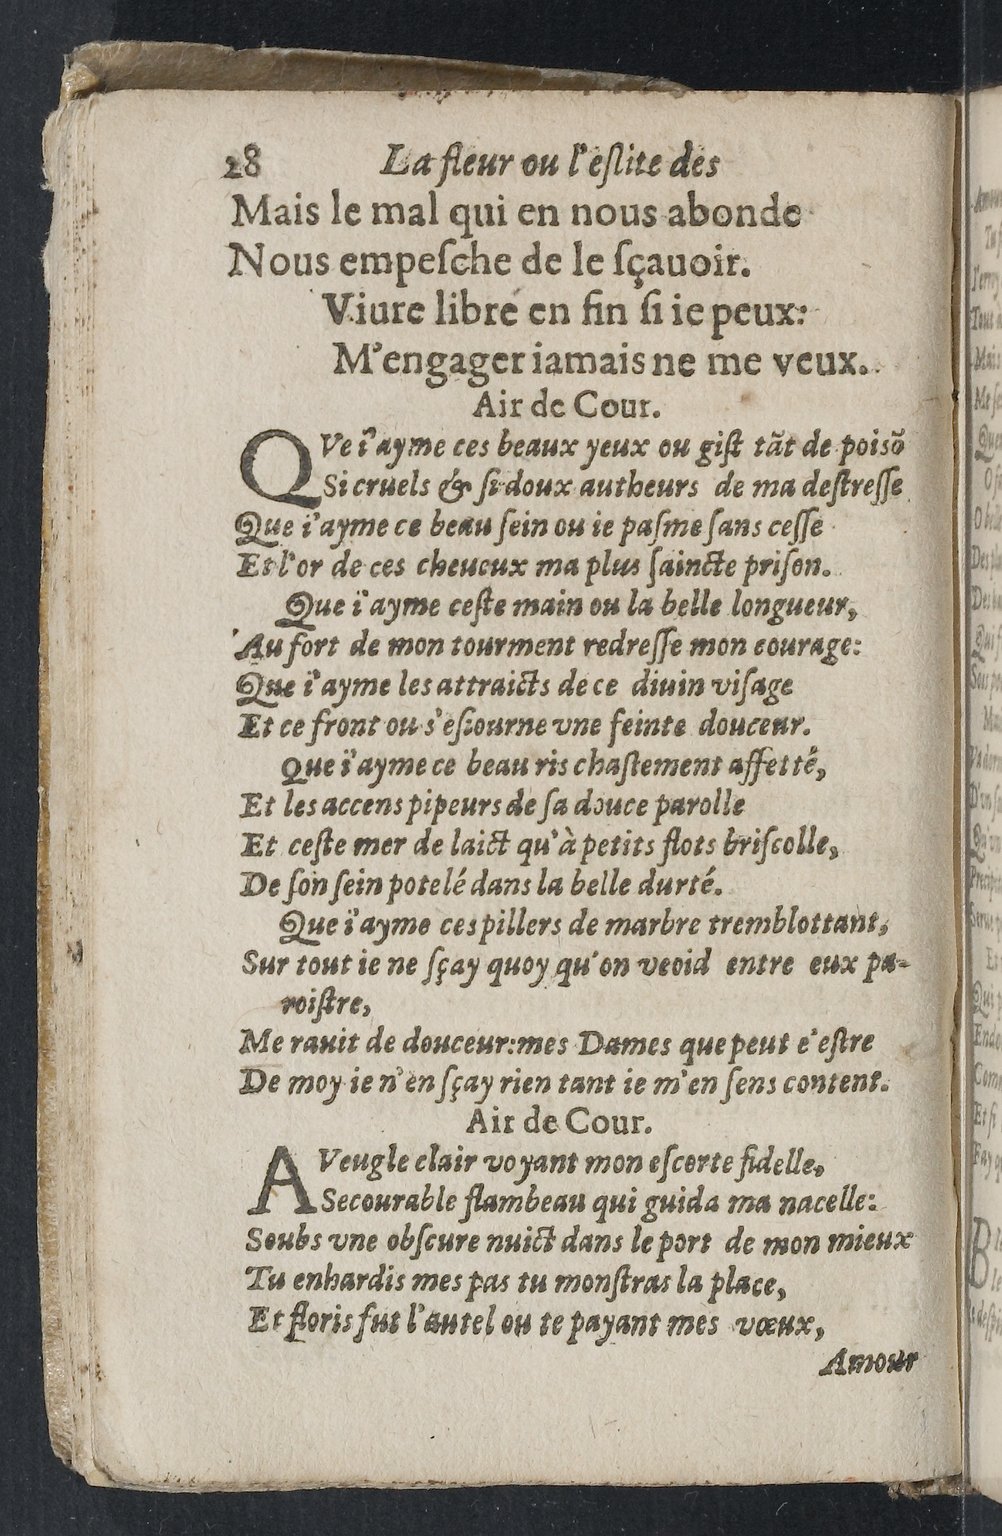 28 La fleur ou l'eslite des
Mais le mal qui en nous abonde
Nous empesche de le sçauoir.
Viure libre en fin si ie peux:
M'engager iamais ne me veux.
Air de Cour.
QVe i'ayme ces beaux yeux ou gist tãt de poisõ
Si cruels & si doux autheurs de ma destresse
Que i'ayme ce beau sein ou ie pasme sans cesse
Et l'or de ces cheueux ma plus saincte prison.
Que i'ayme ceste main ou la belle longueur,
Au fort de mon tourment redresse mon courage:
Que i'ayme les attraicts de ce diuin visage
Et ce front ou s'esiourne vne feinte douceur.
Que i'ayme ce beau ris chastement affetté,
Et les accens pipeurs de sa douce parolle
Et ceste mer de laict qu'à petits flots briscolle,
De son sein potelé dans la belle durté.
Que i'ayme ces pillers de marbre tremblottant,
Sur tout ie ne sçay quoy qu'on veoid entre eux pa-
roistre,
Me rauit de douceur:mes Dames que peut c'estre
De moy ie n'en sçay rien tant ie m'en sens content.
Air de Cour.
AVeugle clair voyant mon escorte fidelle,
Secourable flambeau qui guida ma nacelle:
Soubs vne obscure nuict dans le port de mon mieux
Tu enhardis mes pas tu monstras la place,
Et floris fut l'autel ou te payant mes vœux,
Amour